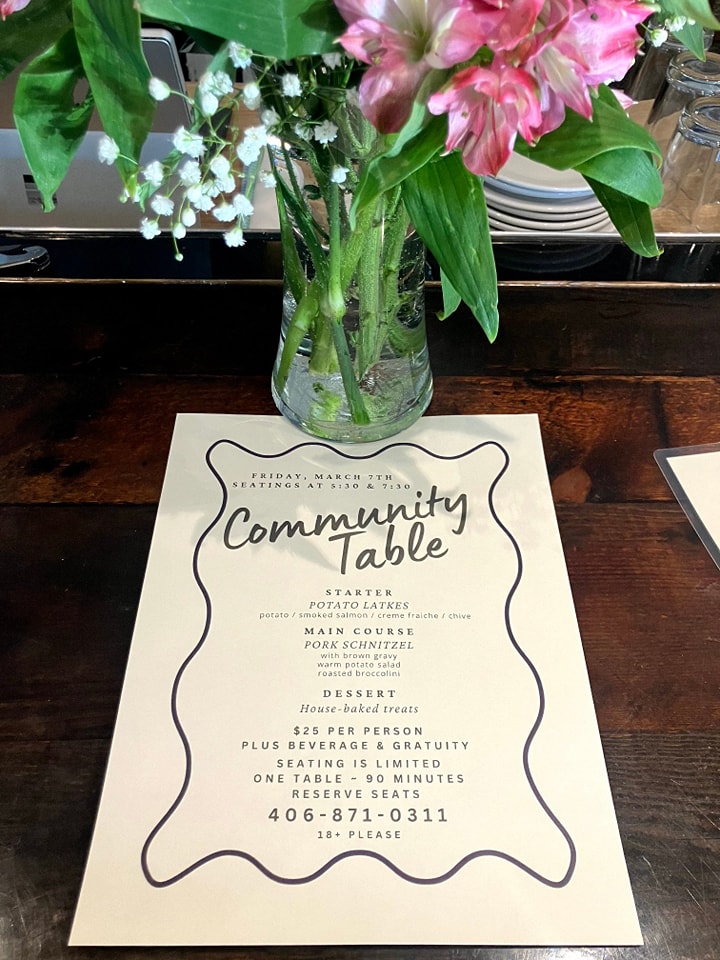 FRIDAY, MARCH 7TH
SEATINGS AT 5:30 & 7:30
Community
Table
STARTER
POTATO LATKES
potato / smoked salmon / creme fraiche / chive
MAIN COURSE
PORK SCHNITZEL
with brown gravy
warm potato salad
roasted broccolini
DESSERT
House-baked treats
$25 PER PERSON
PLUS BEVERAGE & GRATUITY
SEATING IS LIMITED
ONE TABLE ~ 90 MINUTES
RESERVE SEATS
406-871-0311
18+ PLEASE